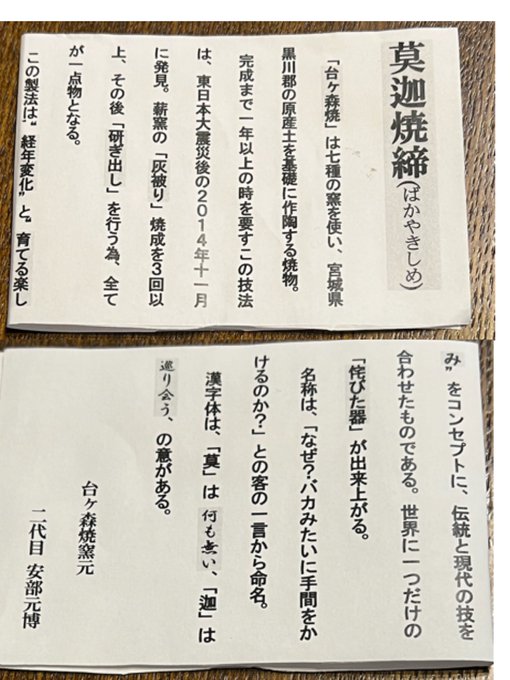 莫迦焼締(ばかやきしめ)
「台ヶ森焼」は七種の窯を使い、宮城県
黒川郡の原産土を基礎に作陶する焼物。
完成まで一年以上の時を要すこの技法
は、東日本大震災後の2014年十一月
に発見。薪窯の「灰被り」焼成を3回以
上、その後「研ぎ出し」を行う為、全て
が一点物となる。
この製法は“経年変化”と“育てる楽し
み”をコンセプトに、伝統と現代の技を
合わせたものである。世界に一つだけの
「侘びた器」が出来上がる。
名称は、「なぜ?バカみたいに手間をか
けるのか?」との客の一言から命名。
漢字体は、「莫」は 何も無い、「迦」は
巡り会う、の意がある。
台ヶ森焼窯元
二代目 安部元博